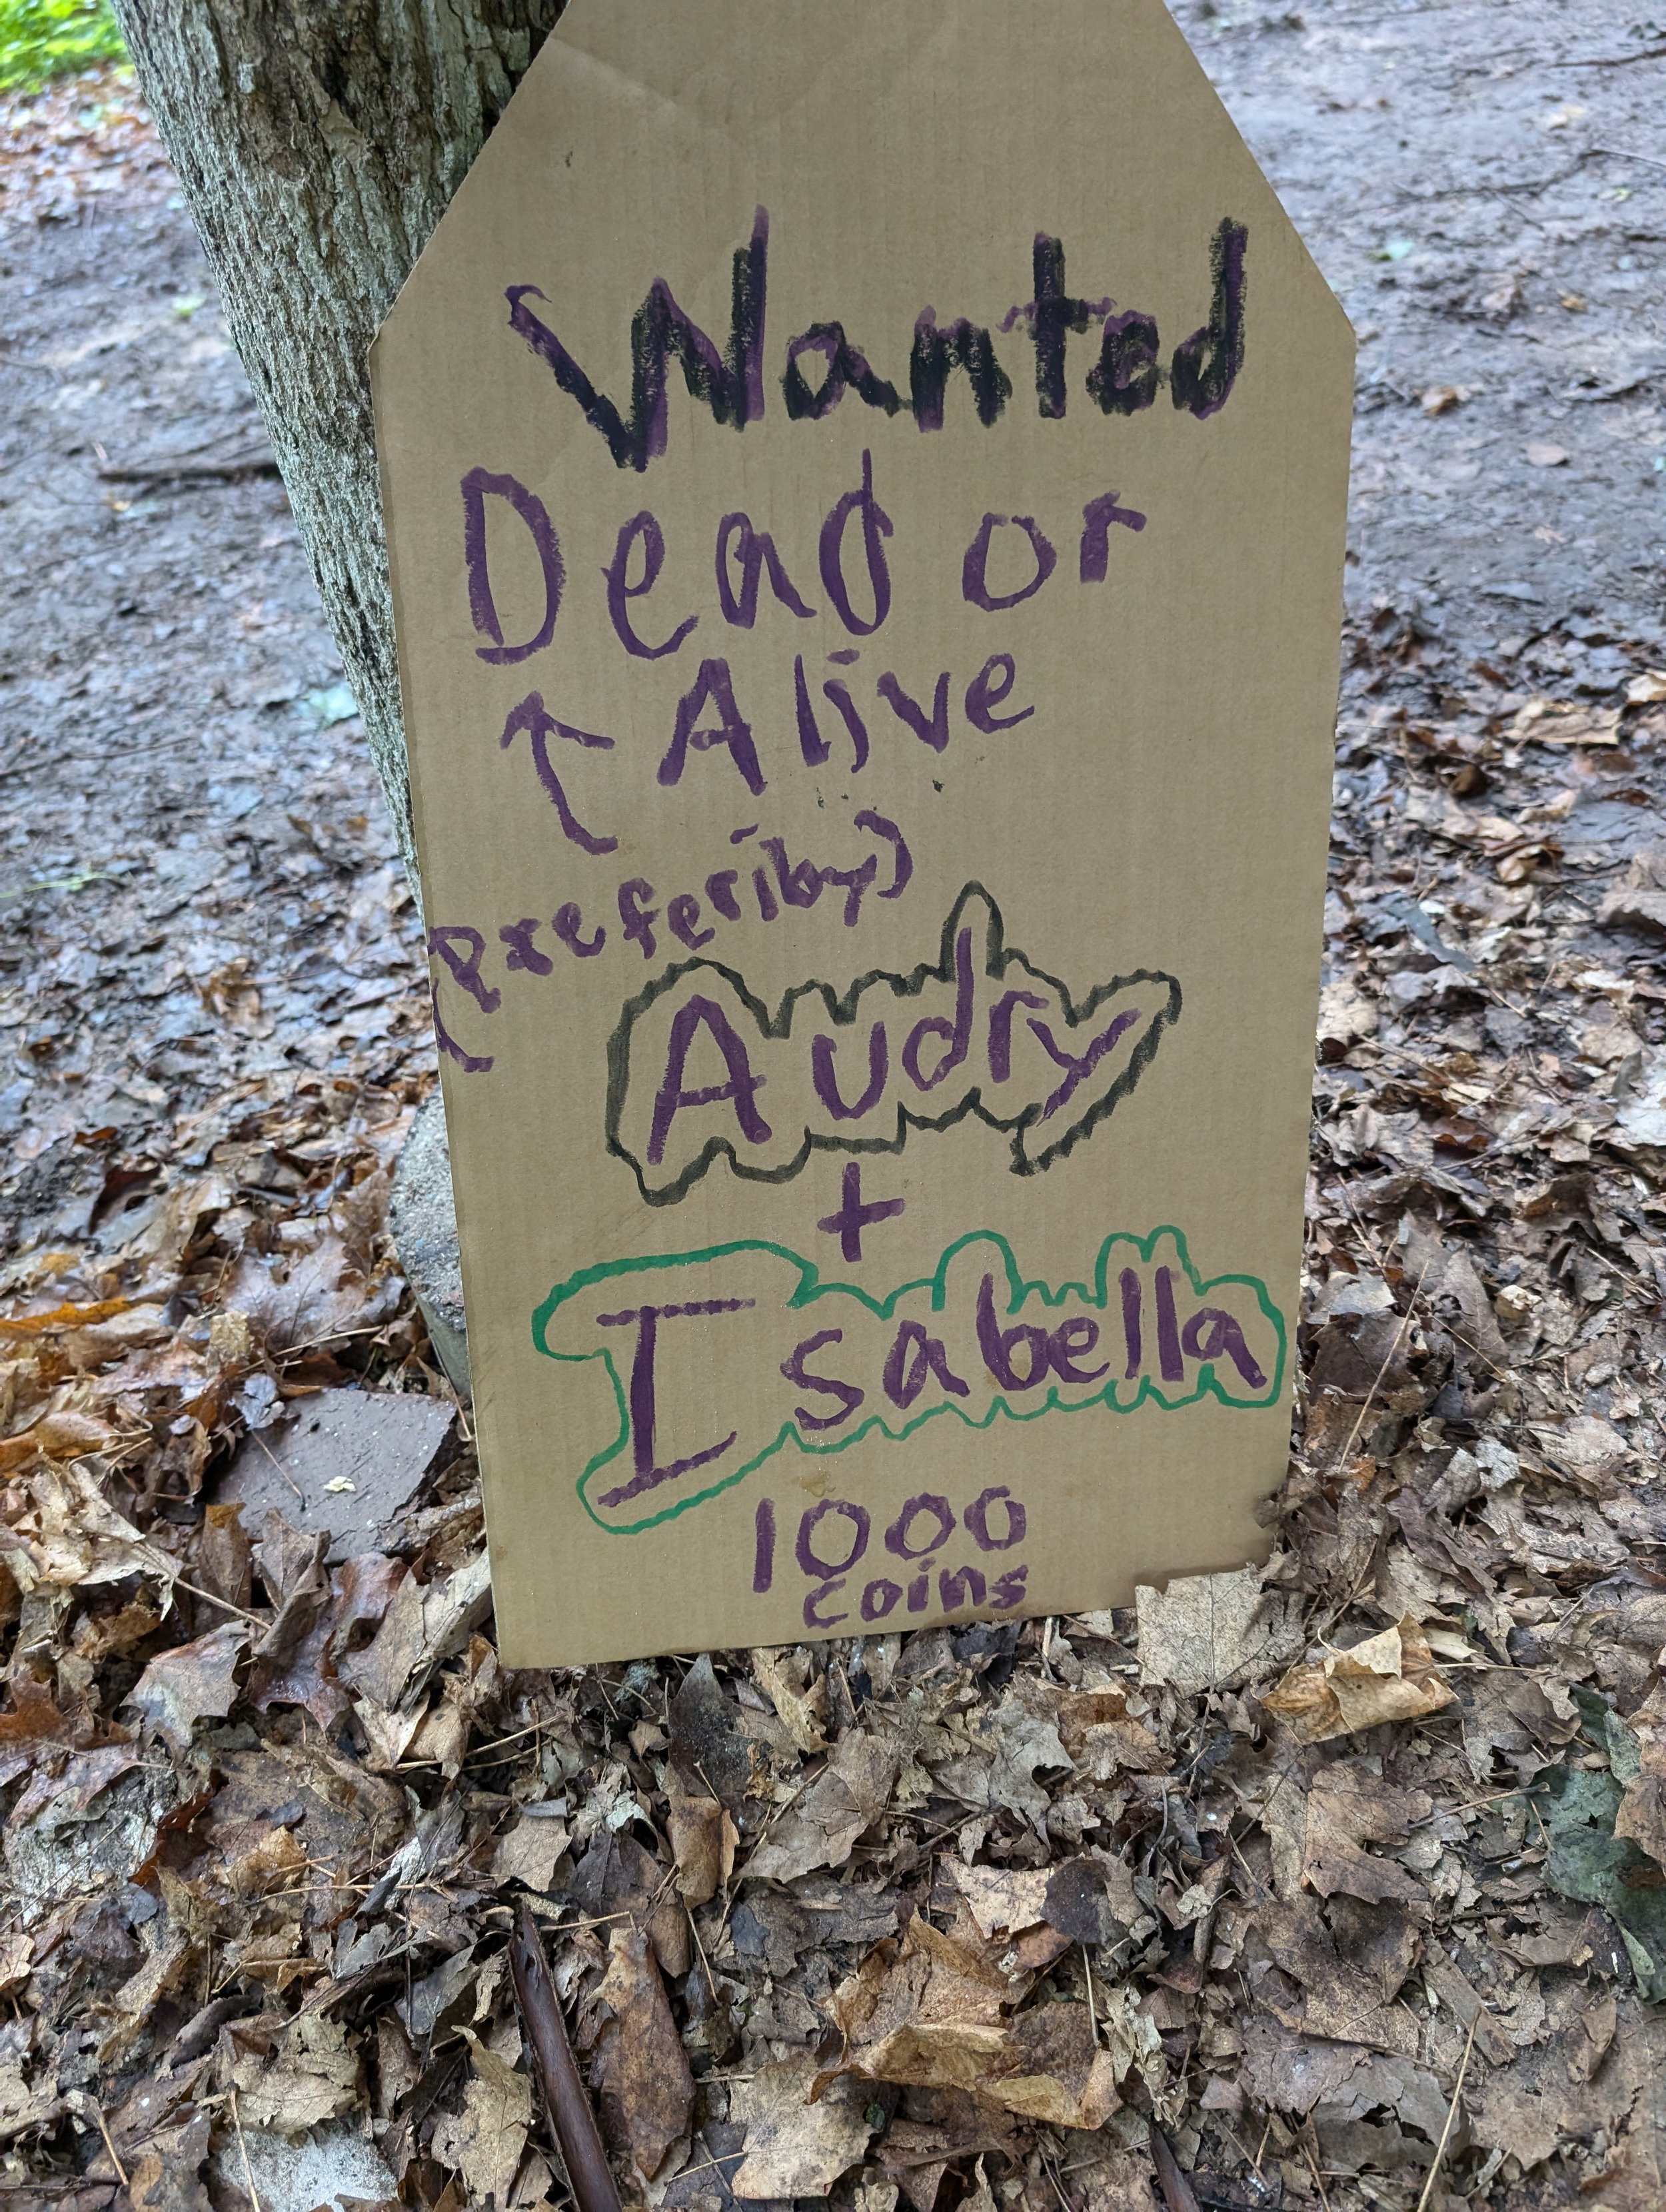 Wanted
Dead or
Alive
(preferiby)
Audry
+
Isabella
1000
coins